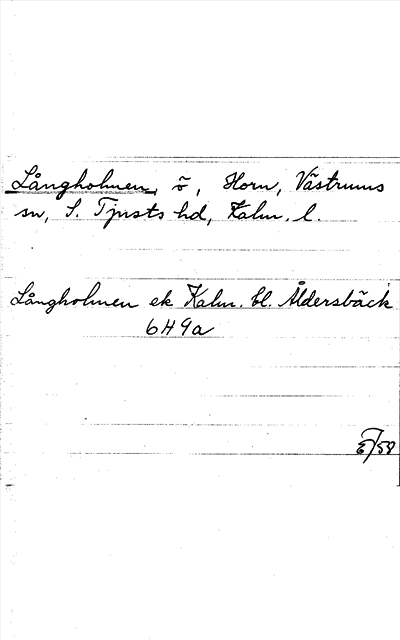 Långholmen, ö, Horn, Västrums
sn, S. Tjusts hd, Kalm. l.
Långholmen ek Kalm. bl. Åldersbäck
6H9a